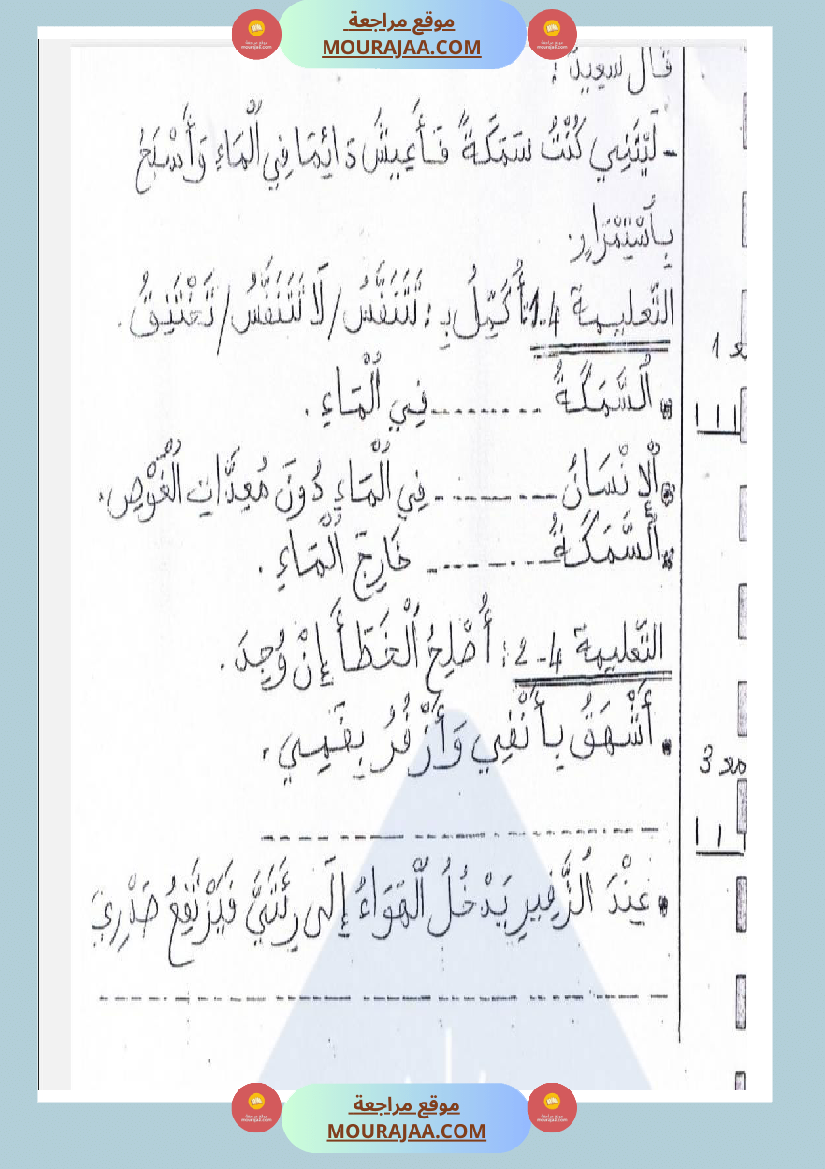 موقع مراجعة
MOURAJAA.COM
قَالَ سَعِيدٌ :
- لَيْتَنِي كُنْتُ سَمَكَةً فَأَعِيشُ دَائِمًا فِي الْمَاءِ وَأَسْبَحُ
بِاسْتِمْرَارٍ.
التّعليمة 4-1: أُكَمِّلُ بِـ : تَتَنَفَّسُ / لَا تَتَنَفَّسُ / تَخْتَنِقُ.
• السَّمَكَةُ ......... فِي الْمَاءِ .
• الْإِنْسَانُ ......... فِي الْمَاءِ دُونَ مُعِدَّاتِ الْغَوْصِ.
• السَّمَكَةُ ......... خَارِجَ الْمَاءِ .
مع 1
التّعليمة 4-2 : أُصْلِحُ الْخَطَأَ إِنْ وُجِدَ .
• أَشْهَقُ بِأَنْفِي وَأَزْفُرُ بِفَمِي .
مع 3
• عِنْدَ الزَّفِيرِ يَدْخُلُ الْهَوَاءُ إِلَى رِئَتَيَّ فَيَرْتَفِعُ صَدْرِي
موقع مراجعة
MOURAJAA.COM